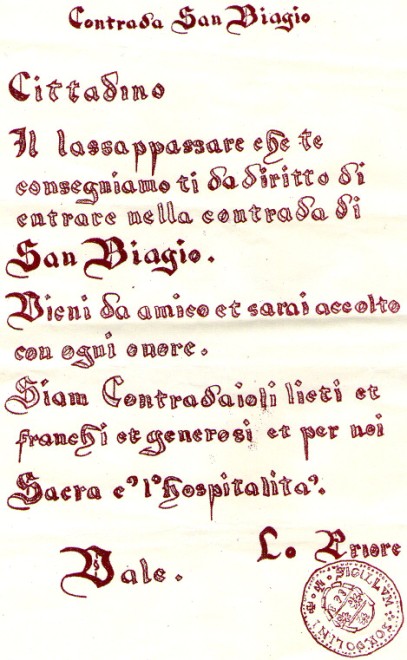 Contrada San Biagio
Cittadino
Il lassappassare che te
consegniamo ti da diritto di
entrare nella contrada di
San Biagio.
Vieni da amico et sarai accolto
con ogni onore.
Siam Contradaioli lieti et
franchi et generosi et per noi
Sacra e' l'hospitalita'.
Lo Priore
Vale.
SIGILLVM